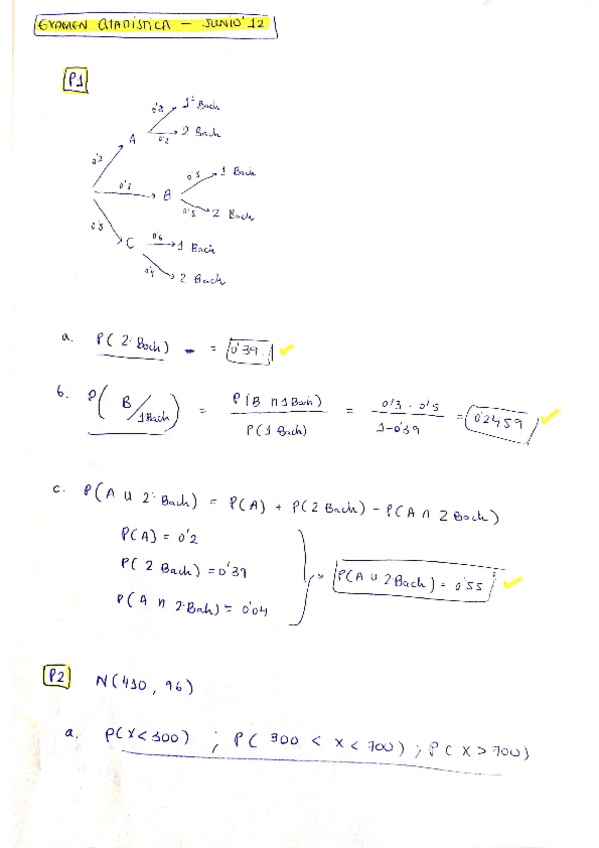 EXAMEN ESTADÍSTICA - JUNIO'12
P1
0'8 1º Bach
A
0'2 2 Bach
0'2
0'5 1 Bach
0'3 B
0'5 2 Bach
0'5
C 0'6 1 Bach
0'4 2 Bach
a. P(2º Bach) = 0'39
b. P(B/1Bach) = P(B ∩ 1Bach) / P(1 Bach) = 0'3 · 0'5 / 1-0'39 = 0'2459
c. P(A ∪ 2º Bach) = P(A) + P(2 Bach) - P(A ∩ 2 Bach)
P(A) = 0'2
P(2 Bach) = 0'39
P(A ∪ 2Bach) = 0'55
P(A ∩ 2º Bah) = 0'04
P2 N(410, 96)
a. P(X<300) ; P(300 < X < 700) ; P(X > 700)